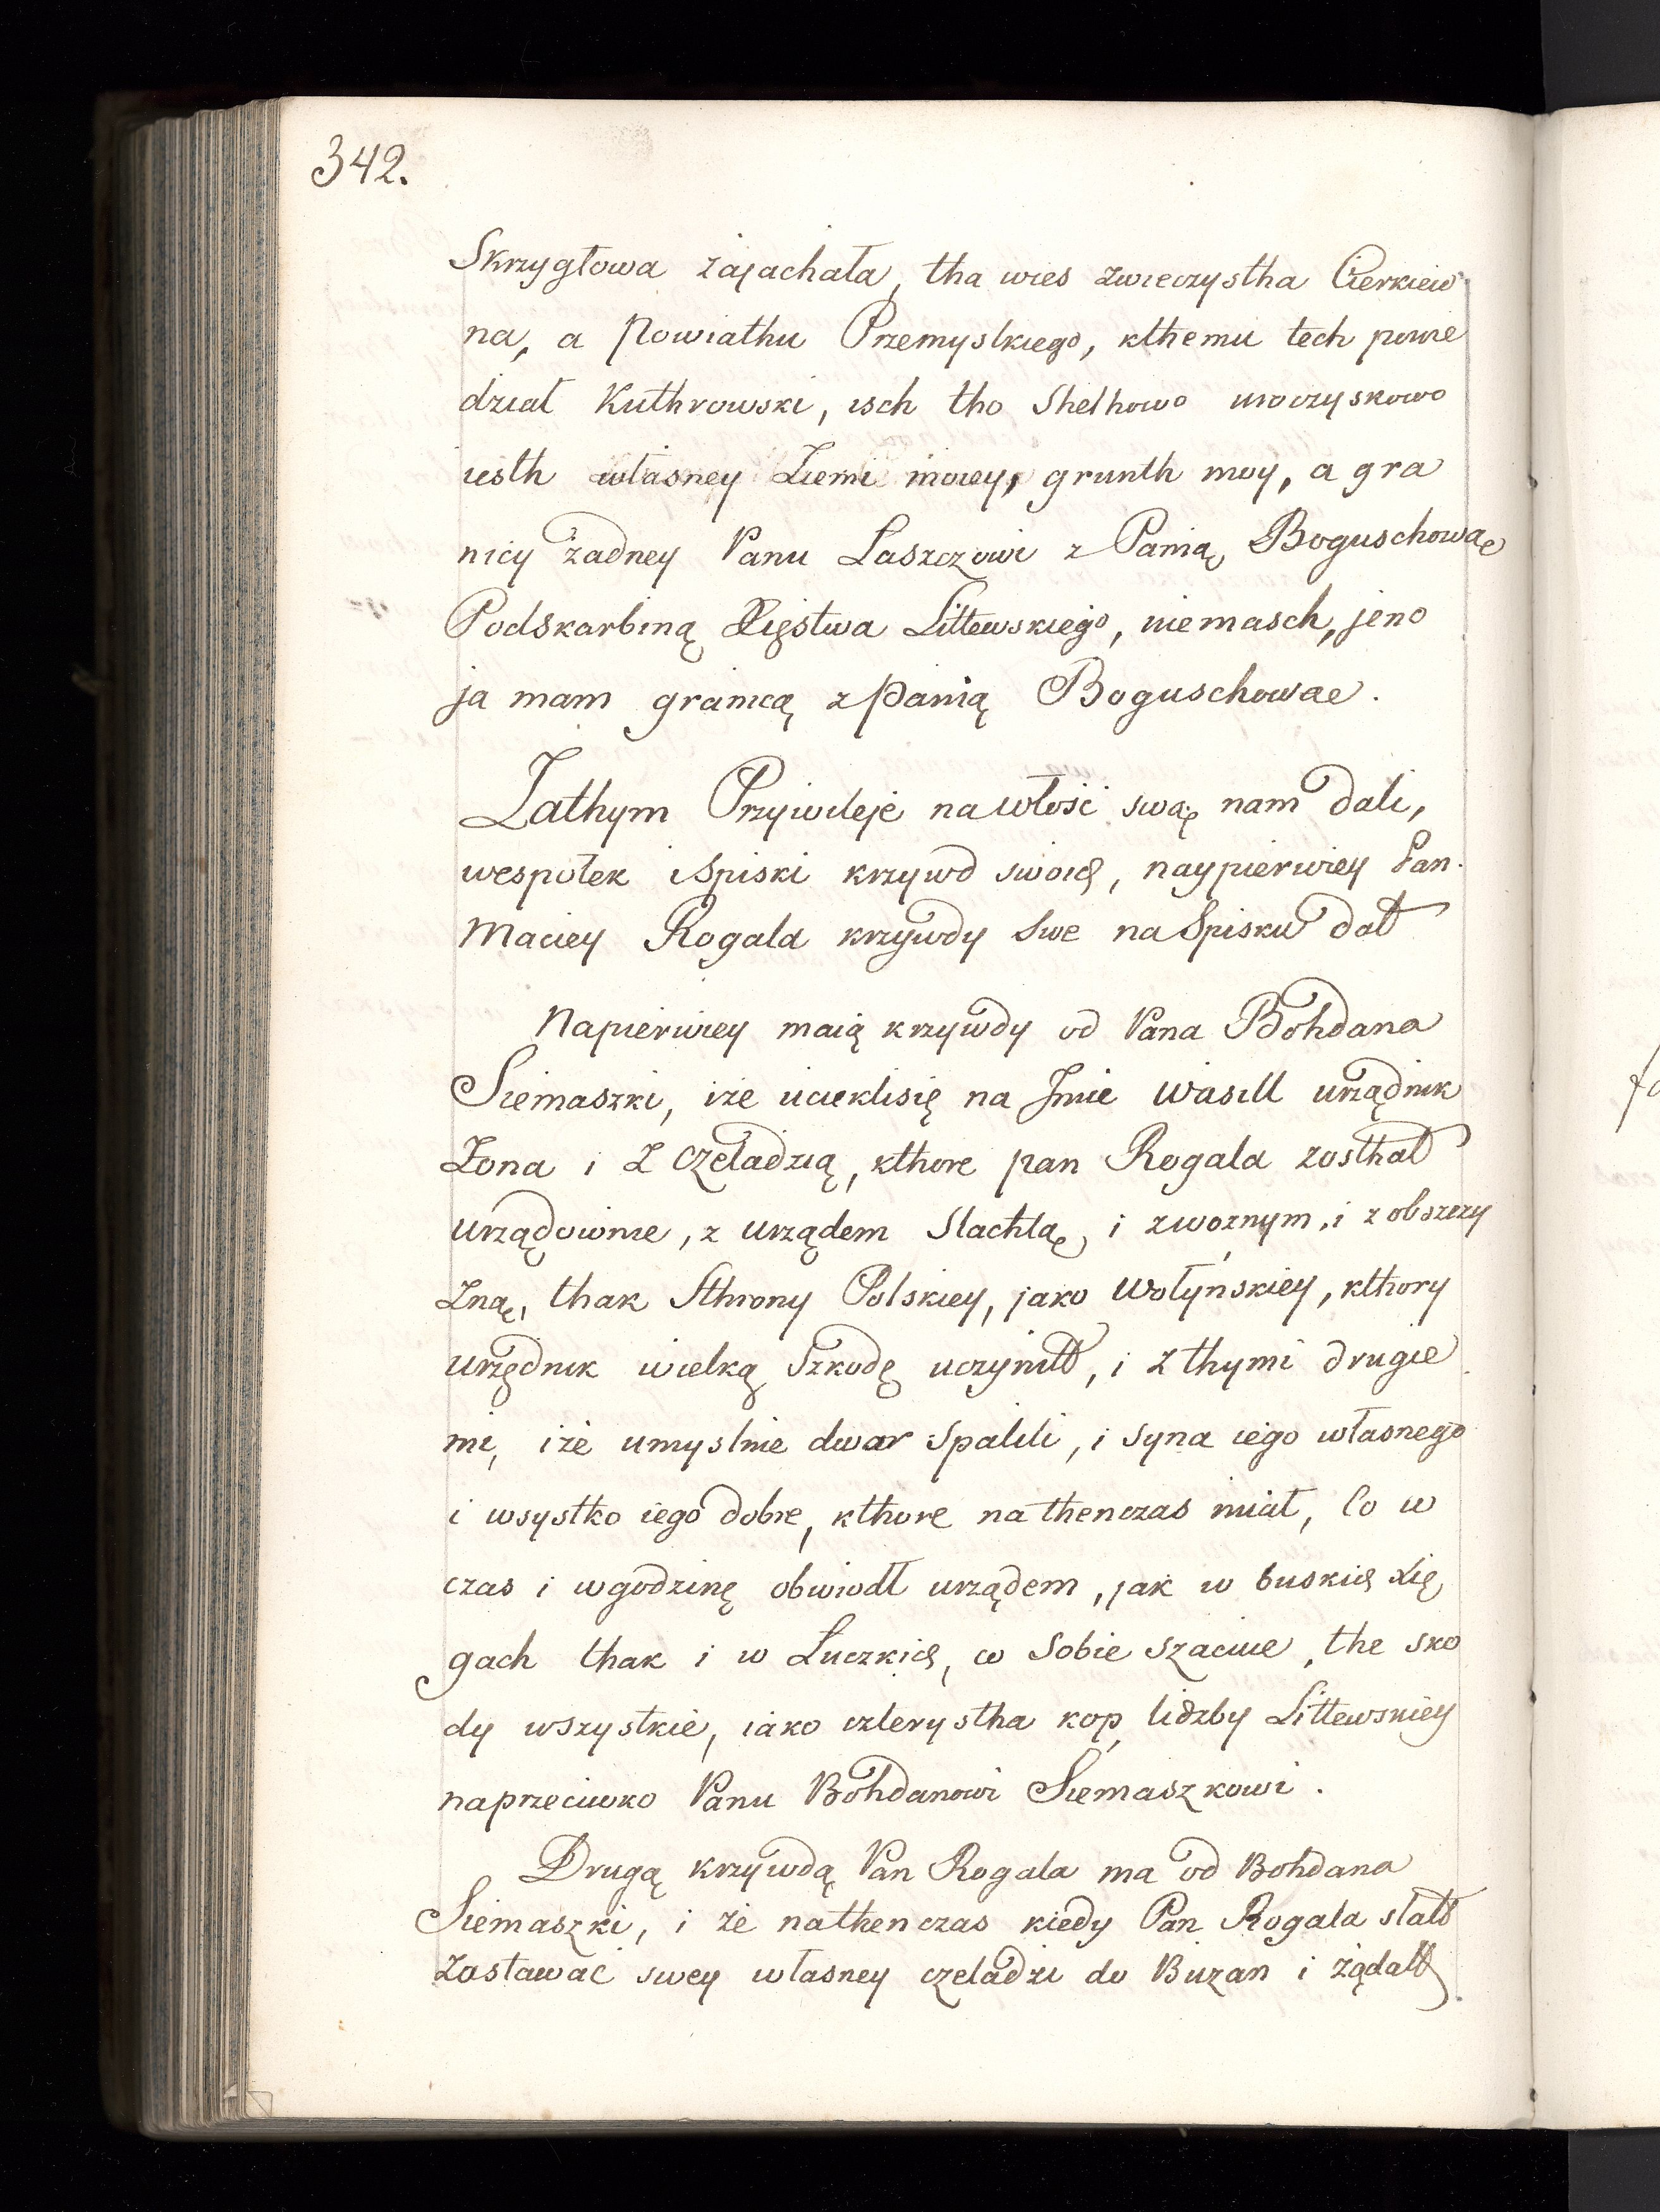 342.
Skrzygłowa zajachała, tha wies zwieczystha Cierkiew
na, a Powiathu Przemyslkiego, kthemu tech powie
dział Kuthrowski, isch tho Shelhowo uroczyskowo
iesth własney Ziemi mowey, grunth moy, a gra
nicy żadney Panu Laszczowi z Panią Boguschowaę
Podskarbiną Xięstwa Littewskiego, niemasch, jeno
ja mam granicą z Panią Boguschowae.
Zathym Przywileje na włość swaę nam dali,
wespołek i Spiski krzywd swoich, naypierwiey Pan
Maciey Rogala krzywdy Swe na Spisku dał
Napierwiey maią krzywdy od Pana Bohdana
Siemaszki, iże uciekli się na Jmie Wasill urządnik
Zona i Z czeladzią, kthore pan Rogala zosthał
urządownie, z urządem Slachtaę, i zwoznym, i z obszezy
Znaę, thak Sthrony Polskiey, jako Wołyńskiey, kthory
urzędnik wielką Szkodę uczynitł, i z thymi drugie
mi, iże umyslnie dwor spalili, i syna iego własnego
i wsystko iego dobre, kthore na thenczas miał, Co w
czas i w godzinę obwiodł urządem, jak w buskich Xię
gach thak i w Łuczkich, co Sobie szacuie, the sko
dy wszystkie, iako czterystha kop, lidzby Littewskiey
naprzeciwko Panu Bohdanowi Siemaszkowi.
Drugą krzywdą Pan Rogala ma od Bohdana
Siemaszki, i że nathenczas kiedy Pan Rogala słałł
Zostawać swey własney czeladzi do Buzan i żądałł